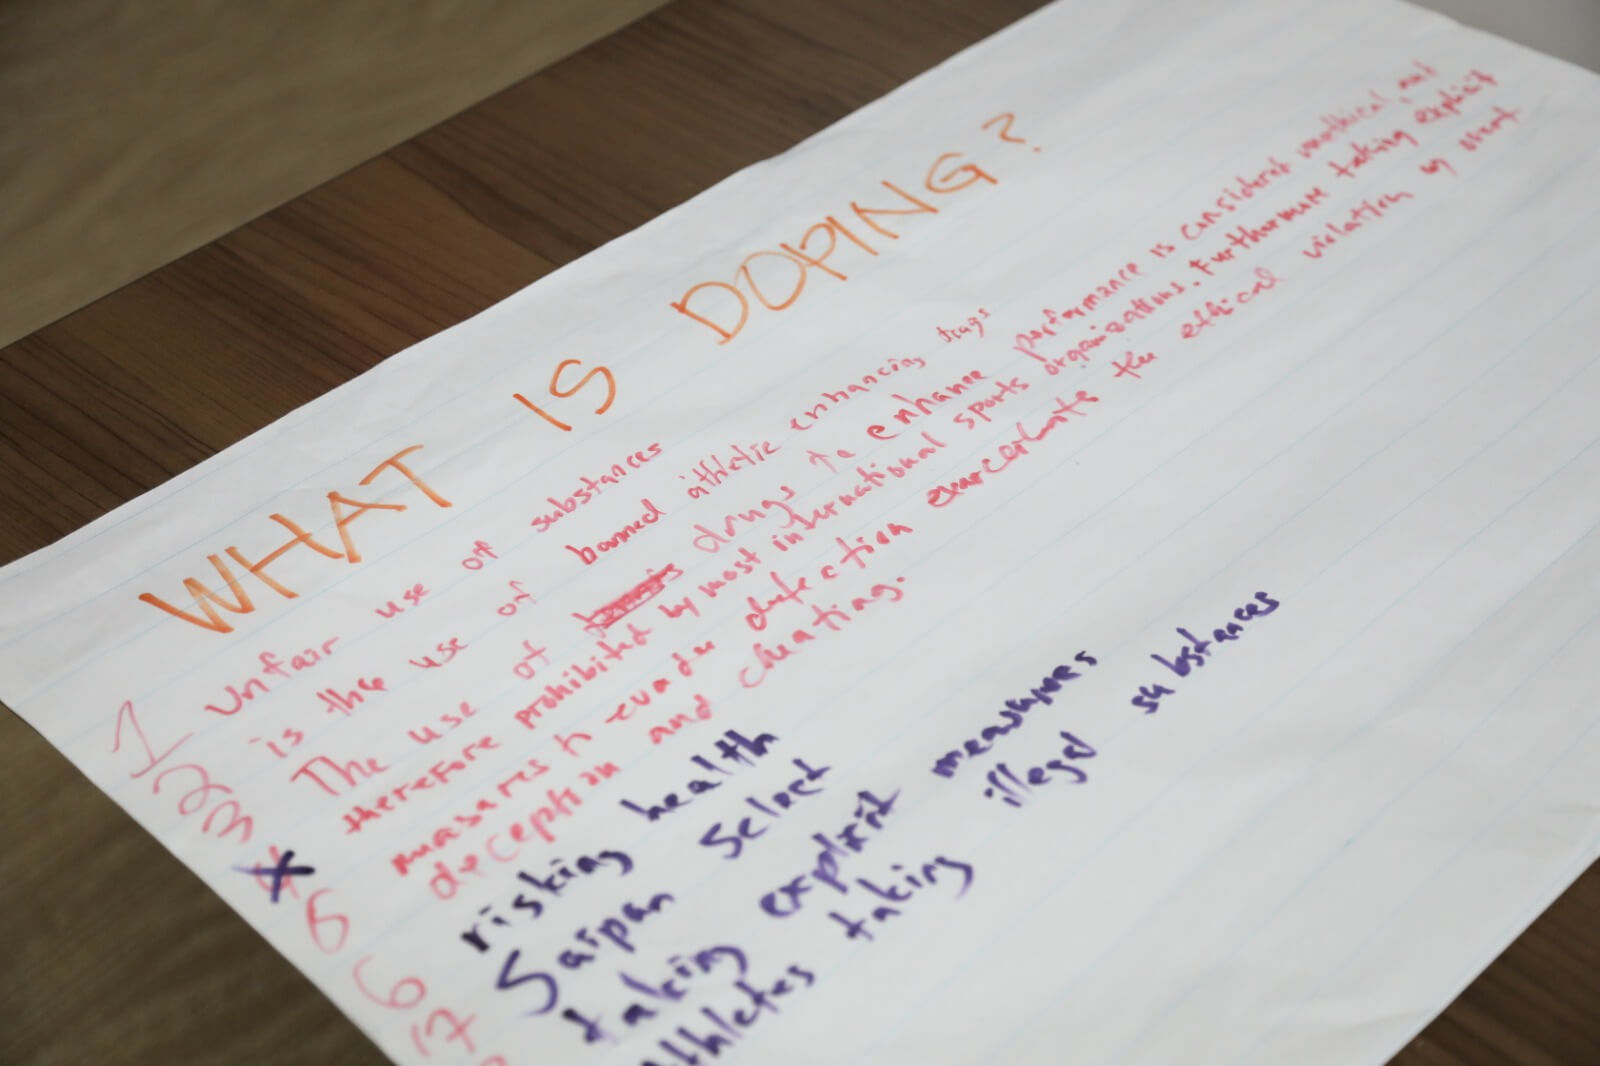 WHAT IS DOPING?
1 Unfair use of substances
2 is the use of banned athletic enhancing drugs
3 The use of drugs to enhance performance is considered unethical, and
4 therefore prohibited by most international sports organizations. Furthermore taking explicit
5 measures to evade detection exarcerbate the ethical violation by overt
6 deception and cheating.
7 risking health
Saipan Select
taking explicit measures
athletes taking illegal substances